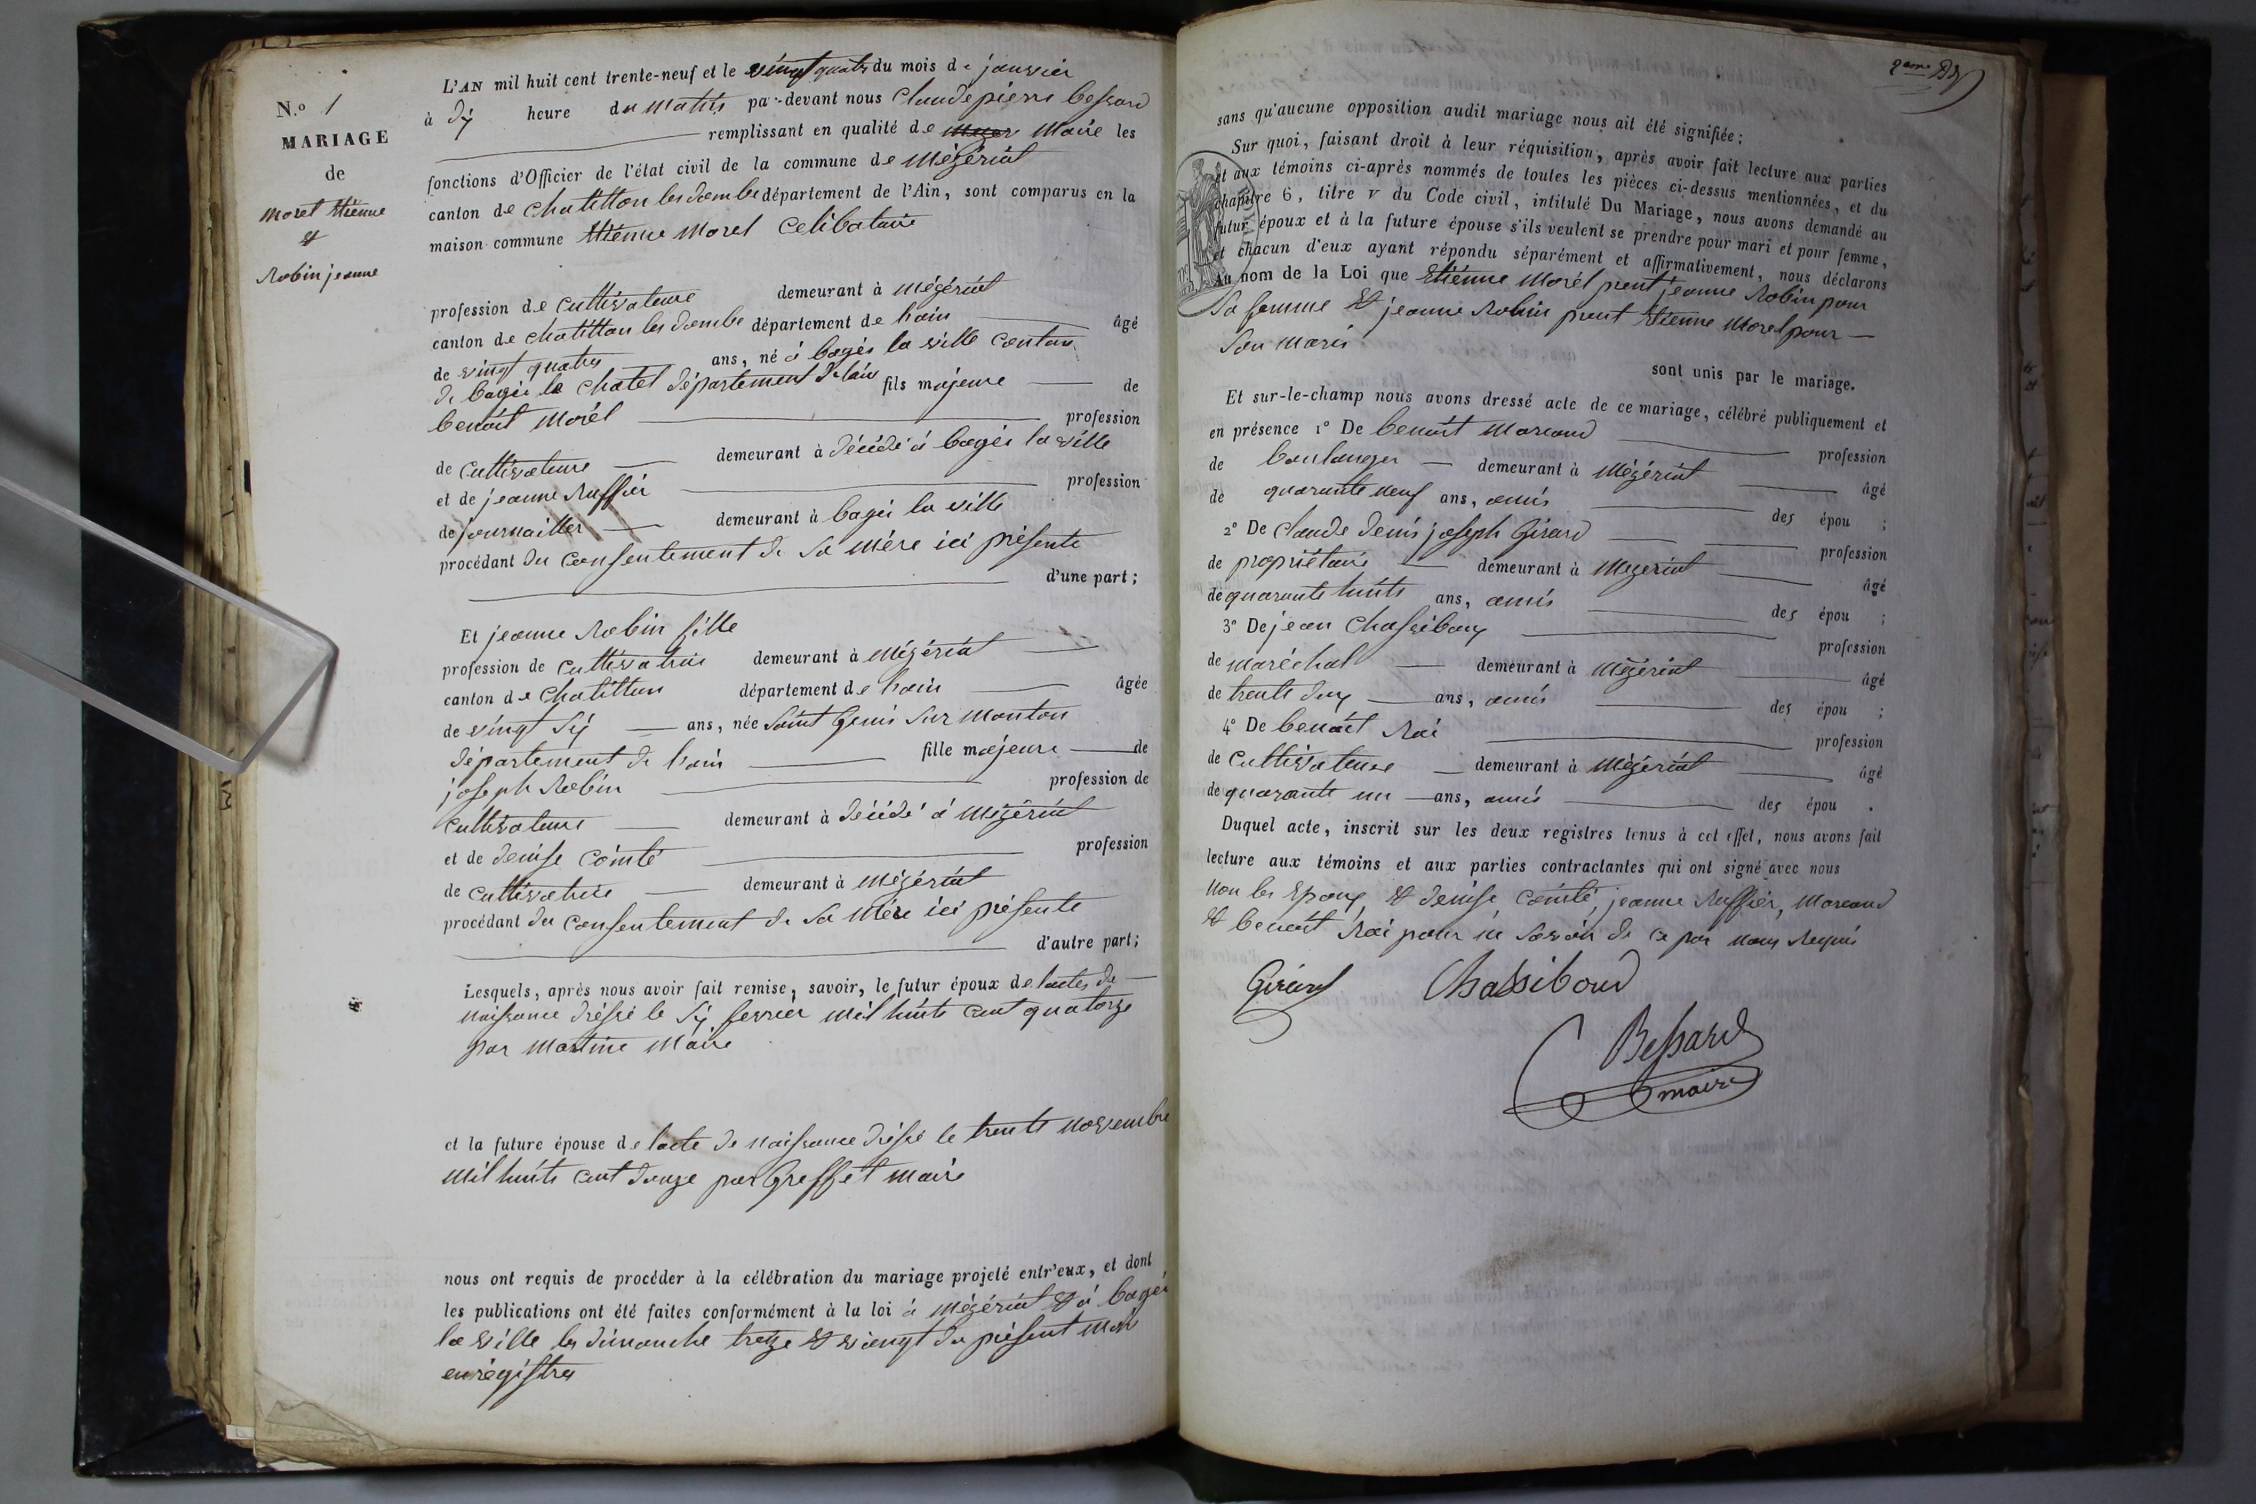 N.º 1
MARIAGE
de
Morel Etiénne
&
Robin jeanne
L'AN mil huit cent trente-neuf et le vingt quatre du mois de janvier
à dix heure du matin par-devant nous Claude pierre Bessard
remplissant en qualité de Maire les
fonctions d'Officier de l'état civil de la commune de Mézériat
canton de chatillon les dombe département de l'Ain, sont comparus en la
maison commune Etiénne Morel Celibataire
profession de Cultivateure demeurant à Mézériat
canton de chatillon les dombe département de l'ain âgé
de vingt quatre ans, né à bagés la ville Canton
de bagé le chatel département de l'ain fils majeure de
benoit Morél profession
de Cultivateure demeurant à décédé à bagés la ville
et de jeanne Ruffiér profession
de journaillér demeurant à bagés la ville
procédant du consentement de Sa Mére ici présente
d'une part;
Et jeanne Robin fille
profession de Cultivatrice demeurant à Mézériat
canton de Chatillon département de l'ain âgée
de vingt Six ans, née Saint Genis Sur Menton
département de l'ain fille majeure de
joseph Robin profession de
Cultivateure demeurant à décédé à Mézériat
et de denise Cointé profession
de Cultivatrice demeurant à Mézériat
procédant du Consentement de Sa Mére ici présente
d'autre part;
Lesquels, après nous avoir fait remise, savoir, le futur époux de lactes de
naissance dréssé le Six fevrier Mil huits cent quatorze
par Martine Maire
et la future épouse de lacte de naissance dréssé le trente novembre
Mil huits cent douze par Greffét maire
nous ont requis de procéder à la célébration du mariage projeté entr'eux, et dont
les publications ont été faites conformément à la loi à Mézériat & à bagés
la ville les dimanche treize & vingt du présent Mois
enrégistre
2eme
sans qu'aucune opposition audit mariage nous ait été signifiée;
Sur quoi, faisant droit à leur réquisition, après avoir fait lecture aux parties
et aux témoins ci-après nommés de toutes les pièces ci-dessus mentionnées, et du
chapitre 6, titre V du Code civil, intitulé Du Mariage, nous avons demandé au
futur époux et à la future épouse s'ils veulent se prendre pour mari et pour femme,
et chacun d'eux ayant répondu séparément et affirmativement, nous déclarons
Au nom de la Loi que Etiénne Morél prent jeanne Robin pour
Sa femme & jeanne Robin prent Etienne Morel pour
Son Maris
sont unis par le mariage.
Et sur-le-champ nous avons dressé acte de ce mariage, célébré publiquement et
en présence 1º De benoit Moreaud profession
de boulanger demeurant à Mézériat âgé
de quarante neuf ans, amis des épou ;
2º De Claude denis joseph Girard profession
de propriétaire demeurant à Mezeriat âgé
de quarante huits ans, amis des épou ;
3º De jean Chassiboux profession
de maréchal demeurant à Mézériat âgé
de trente deux ans, amis des épou ;
4º De benoit Rai profession
de Cultivateure demeurant à Mézériat âgé
de quarante un ans, amis des épou .
Duquel acte, inscrit sur les deux registres tenus à cet effet, nous avons fait
lecture aux témoins et aux parties contractantes qui ont signé avec nous
non les Epoux & denise Cointé, jeanne Ruffiér, Moreaud
& benoit Rai pour ne Savoir de ce par nous Requis
Girard Chassiboud
Bessard
maire